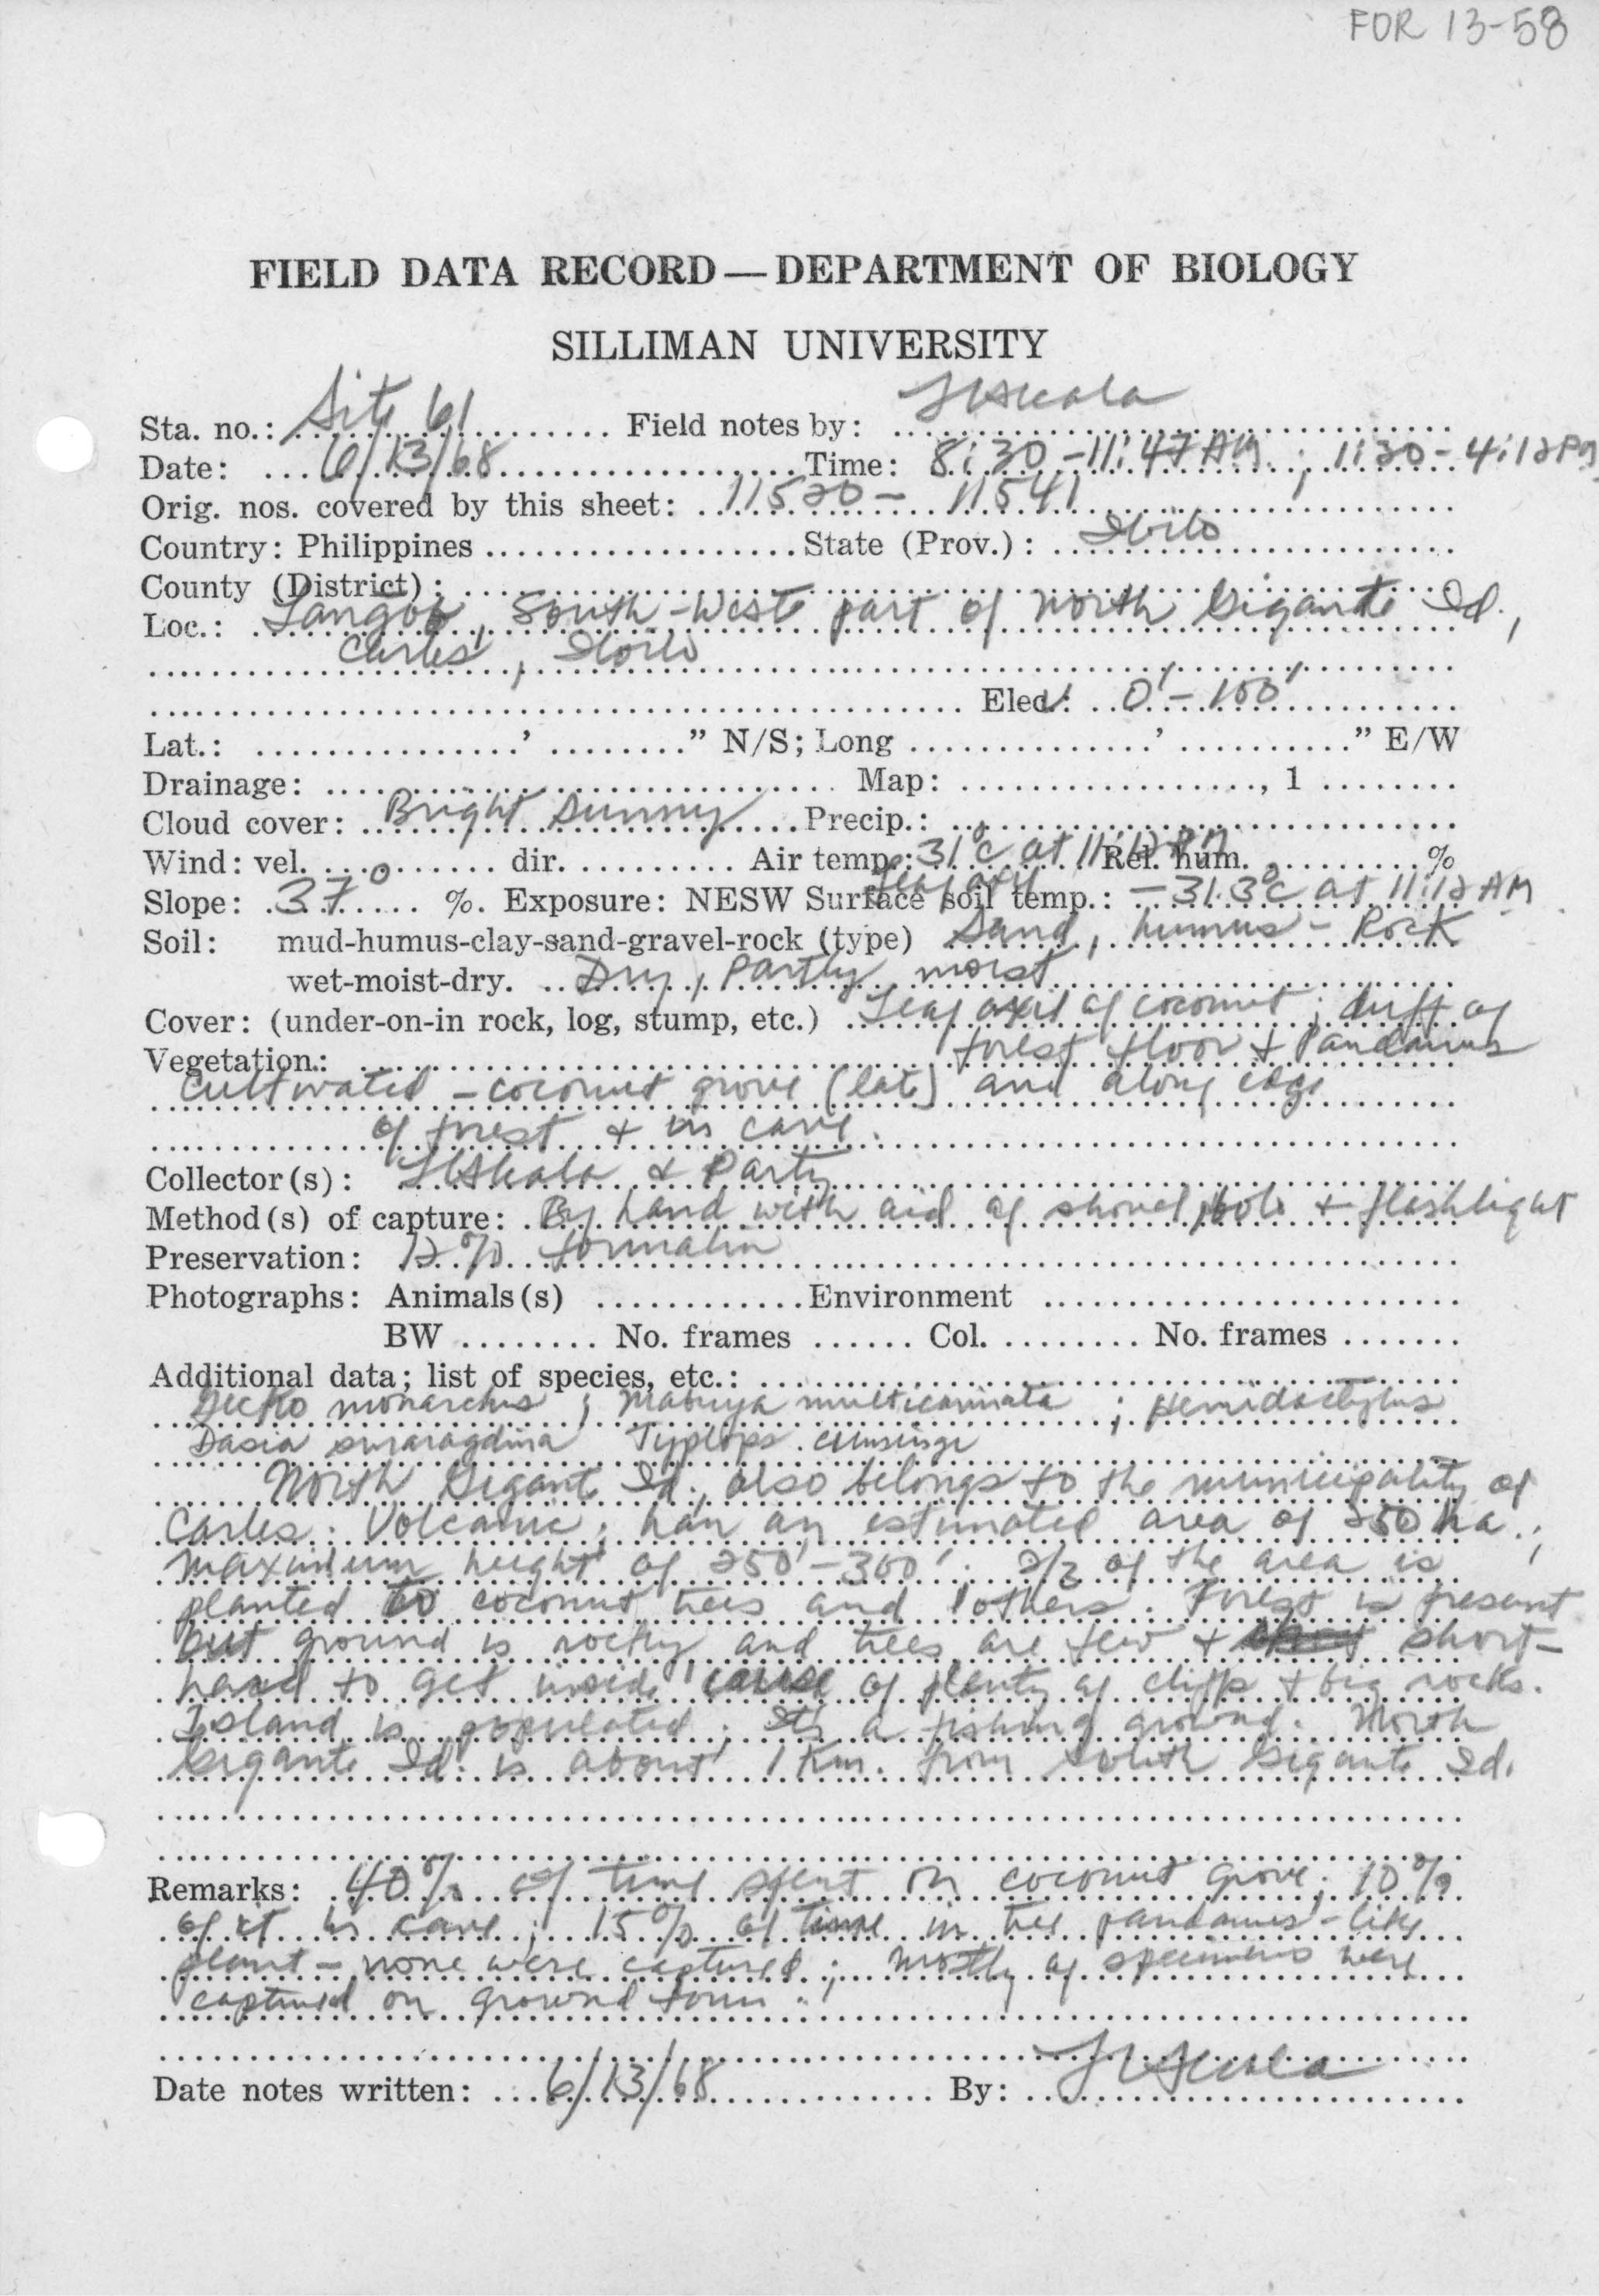 FOR 13-58
FIELD DATA RECORD — DEPARTMENT OF BIOLOGY
SILLIMAN UNIVERSITY
Sta. no.: Site 61 Field notes by: LCAlcala
Date: 6/13/68 Time: 8:30 - 11:47 AM ; 1:30 - 4:12 PM
Orig. nos. covered by this sheet: 11520 - 11541
Country: Philippines State (Prov.): Iloilo
County (District):
Loc.: South-West part of North Gigante Id.,
Carles, Iloilo
Elev: 0' - 100'
Lat.: ' " N/S; Long ' " E/W
Drainage: Map: , 1
Cloud cover: Bright sunny Precip.:
Wind: vel. 0 dir. Air temp.: 31°C at 11:12 Rel. hum. %
Slope: 37° %. Exposure: NESW Surface soil temp.: leaf axil - 31.3°C at 11:12 AM
Soil: mud-humus-clay-sand-gravel-rock (type) Sand, humus - Rock
wet-moist-dry. Dry, Partly moist
Cover: (under-on-in rock, log, stump, etc.) Leaf axil of coconut; duff of
forest floor + Pandanus
Vegetation.:
Cultivated - coconut grove (late) and along edge
of forest + in cave.
Collector(s): LCAlcala & Party
Method(s) of capture: By hand with aid of shovel, bolo + flashlight
Preservation: 12% formalin
Photographs: Animals(s) Environment
BW No. frames Col. No. frames
Additional data; list of species, etc.:
Gecko monarchus ; Mabuya multicarinata ; Hemidactylus
Dasia smaragdina Typlops cumingi
North Gigante Id., also belongs to the municipality of
Carles. Volcanic; has an estimated area of 250 ha.;
maximum height of 250' - 300'. 2/3 of the area is
planted to coconut trees and others. Forest is present
but ground is rocky and trees are few + short -
hard to get inside cause of plenty of cliffs + big rocks.
Island is populated; It's a fishing ground. North
Gigante Id. is about 1 Km. from South Gigante Id.
Remarks: 40% of time spent on coconut grove; 10%
of it in cave; 15% of time in tree pandanus-like
plant - none were captured; mostly of specimens were
captured on ground
Date notes written: 6/13/68 By: LCAlcala